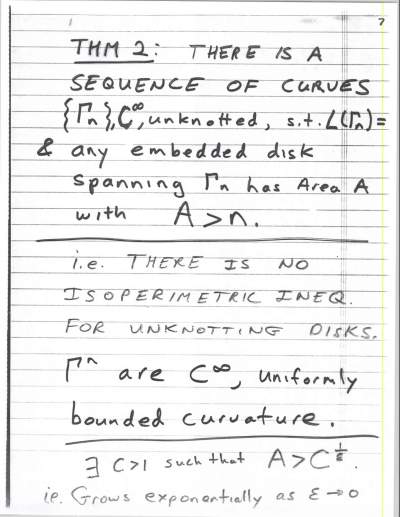 7
THM 2: THERE IS A
SEQUENCE OF CURVES
{Γₙ}, C^∞, unknotted, s.t. L(Γₙ)=
& any embedded disk
spanning Γₙ has Area A
with A>n.
i.e. THERE IS NO
ISOPERIMETRIC INEQ.
FOR UNKNOTTING DISKS.
Γⁿ are C^∞, uniformly
bounded curvature.
∃ C>1 such that A>C^{1/ε}.
ie. Grows exponentially as ε→0